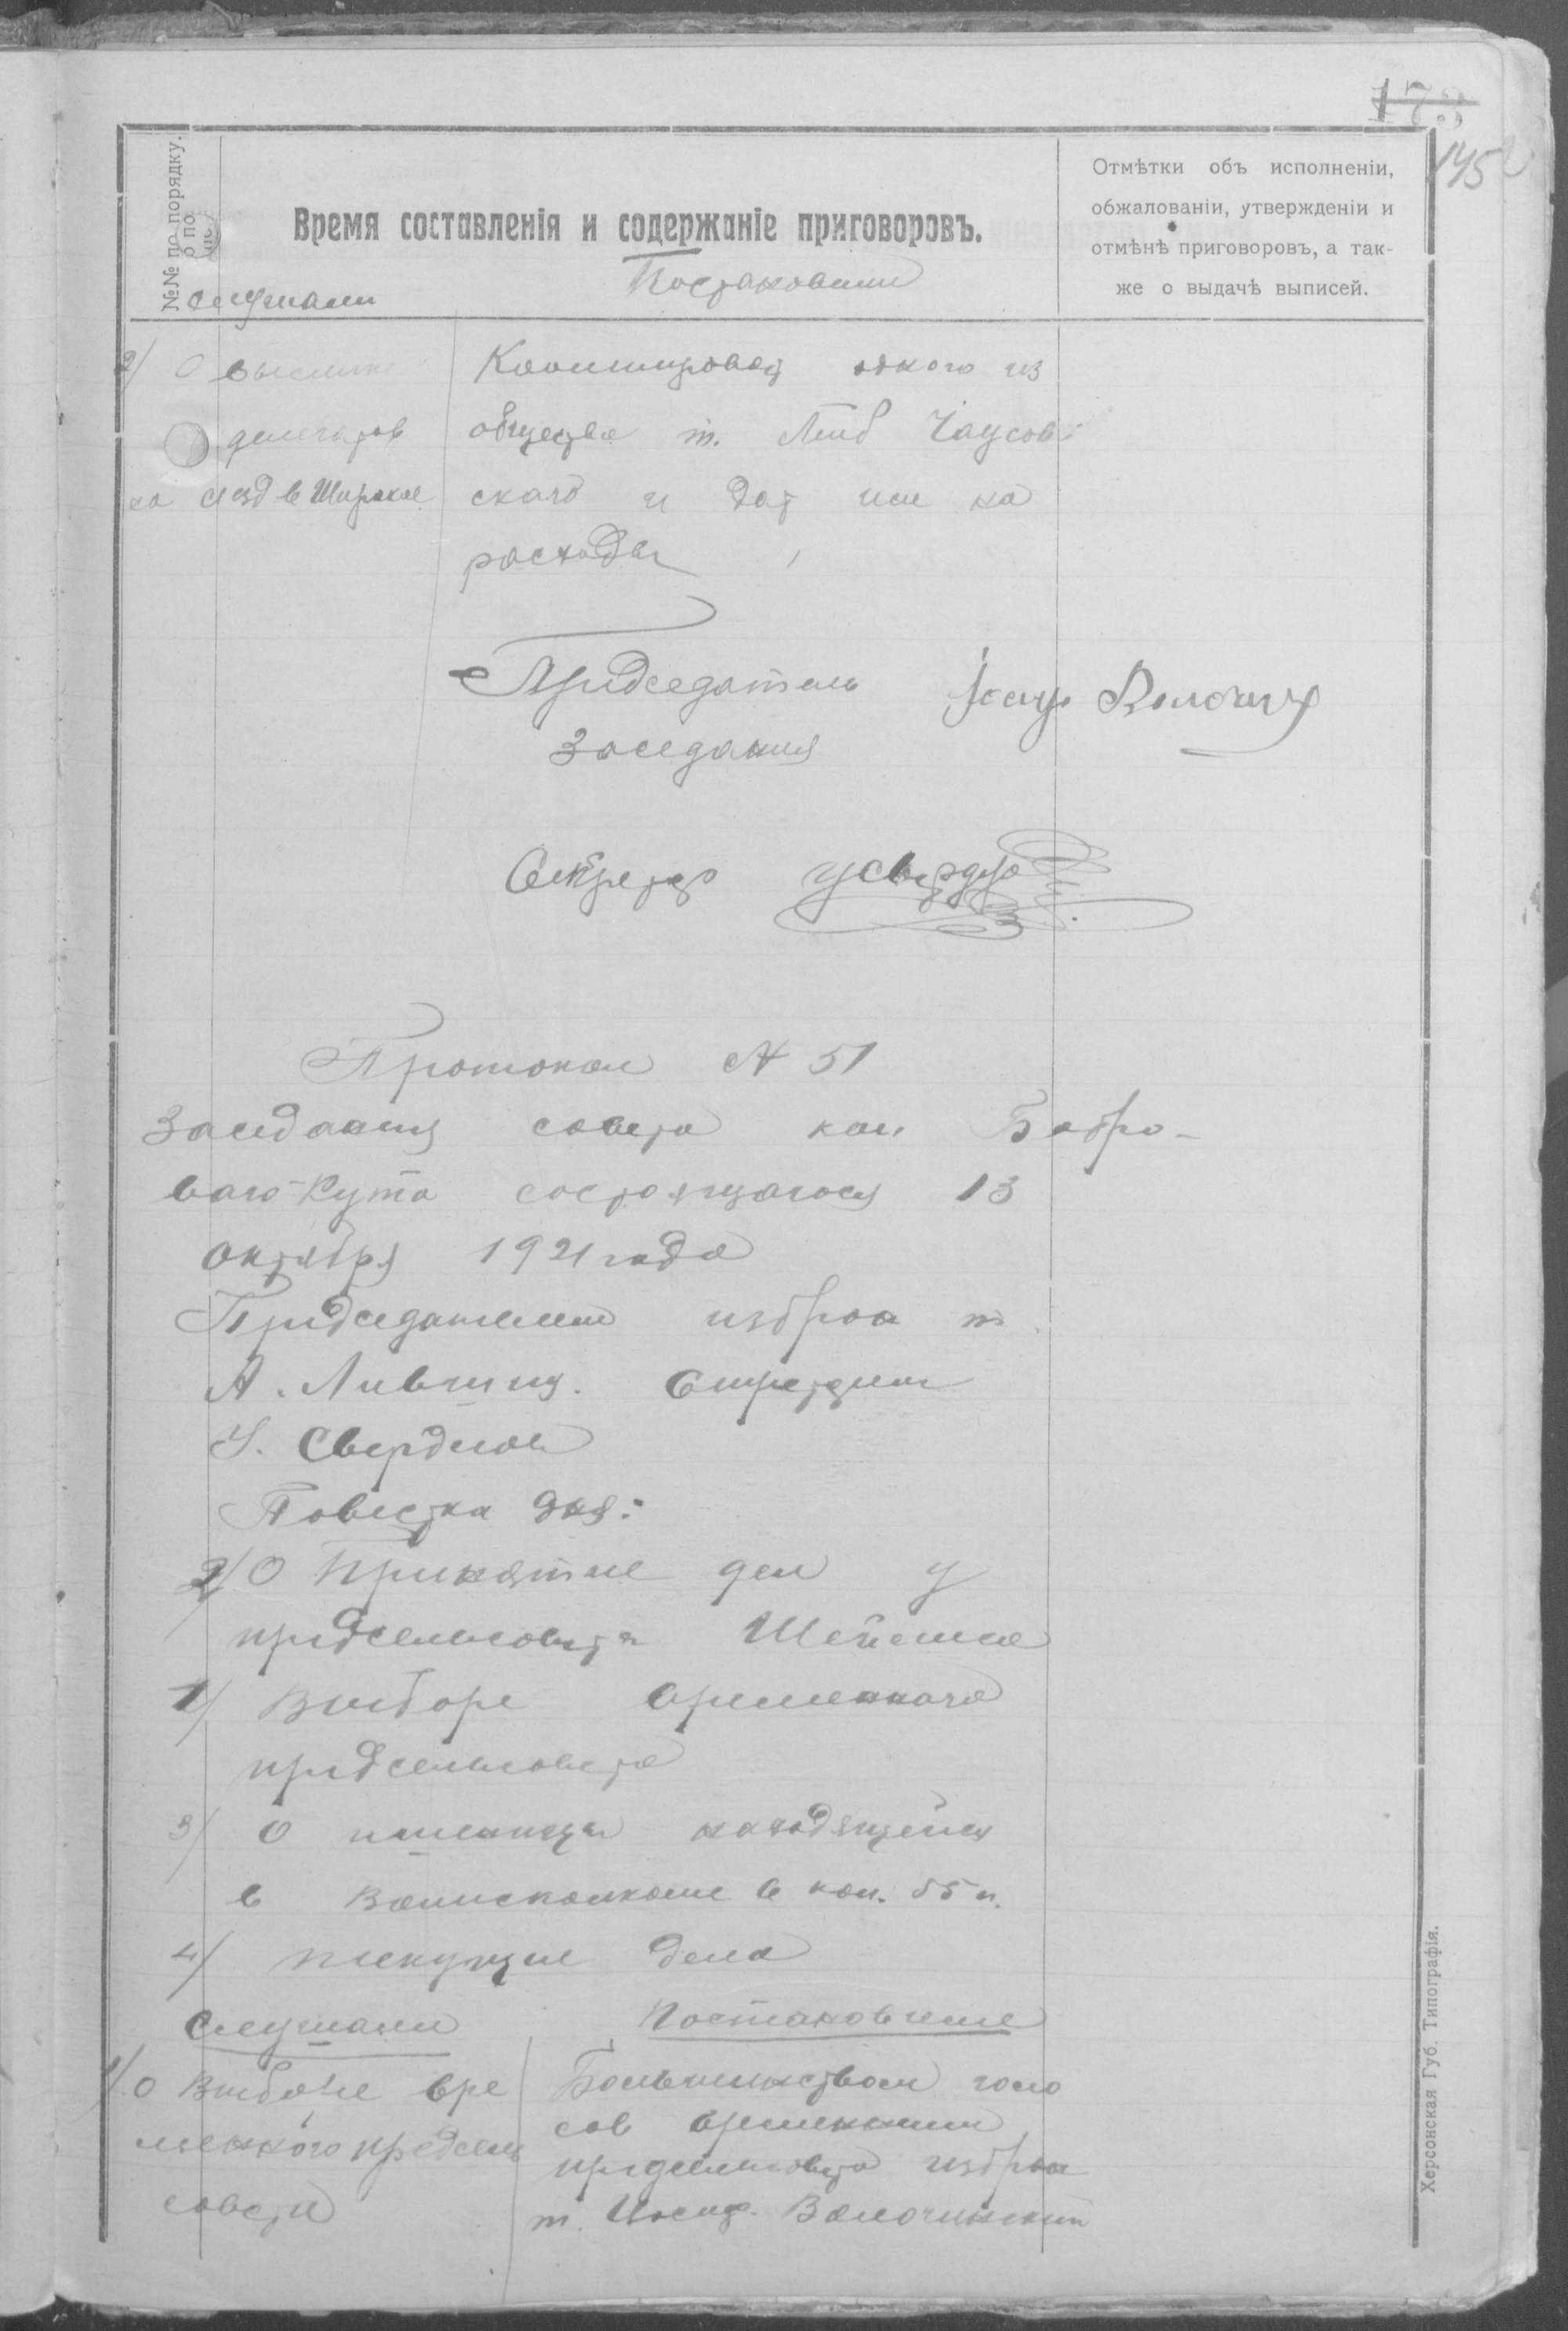 173
145
№№ по порядку.
Время составленія и содержаніе приговоровъ.
Отмѣтки объ исполненіи,
обжалованіи, утвержденіи и
отмѣнѣ приговоровъ, а так-
же о выдачѣ выписей.
Слушали
Постановили
2/ О высылке
делегатов
на сезд в Широкое
Командировать одного из
общества т. Лейб Чаусов
ского и дать им на
расходы
Председатель
заседания
Секретарь
Протокол № 51
Заседания совета кол. Бобро-
ваго-Кута состоящагося 13
октября 1921 года
Председателем избран т.
А. Лившиц. Секретарем
У. Свердлов
Повестка дня:
2/ О принятие дел у
предсельсовета
1/ Выборе временного
предсельсовета
3/ О пшеницы находящейся
в Волисполкоме в кол. 55 п.
4/ текущие дела
Слушали
Постановление
1/ О выборе вре
менного предсель
совета
Большинством голо
сов временным
предсельсовета избран
т. Иосиф Волочинский
Херсонская Губ. Типографія.